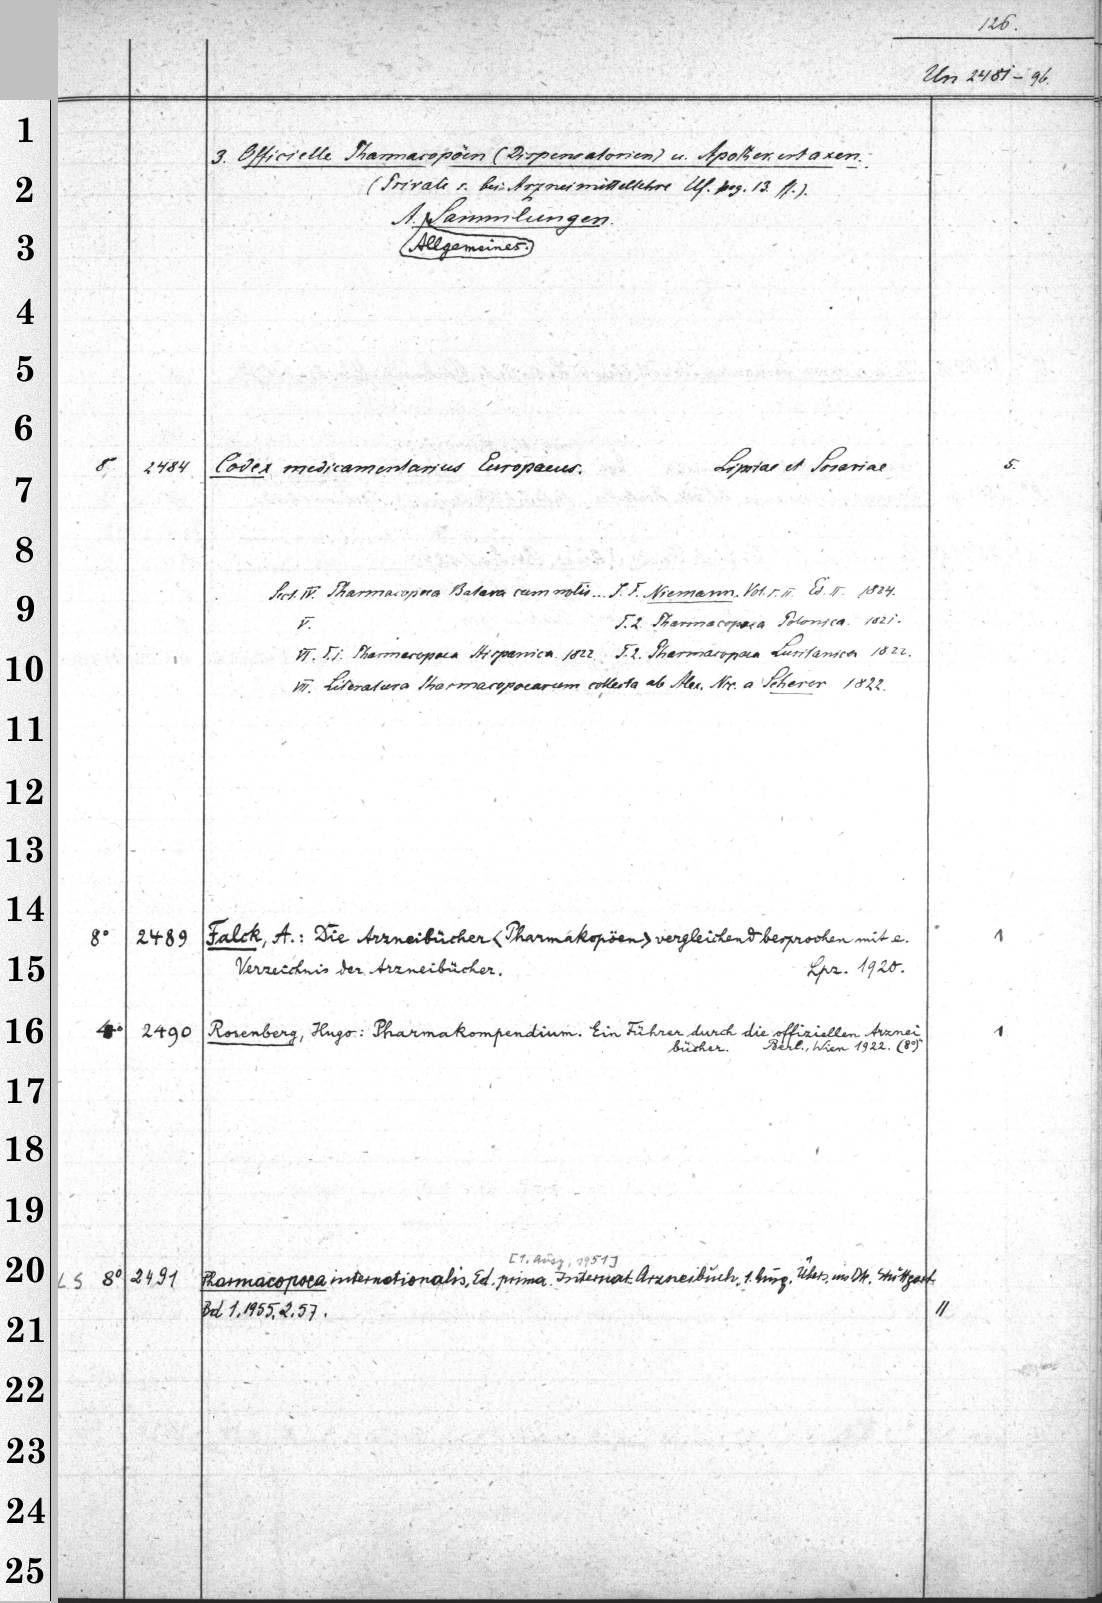 126.
Un 2481-96.
3. Officielle Pharmacopöen (Dispensatorien) u. Apothekertaxen.
(Private s. bei Arzneimittellehre Uf. pag. 13. ff.).
A. Sammlungen.
Allgemeines.
8° 2484 Codex medicamentarius Europaeus. Lipsiae et Sorariae 5.
Sect. IV. Pharmacopoea Batava cum notis... J. F. Niemann. Vol. I. II. Ed. II. 1824.
V. T. 2. Pharmacopoea Polonica. 1821.
VI. T. 1. Pharmacopoea Hispanica. 1822 T. 2. Pharmacopoea Lusitanica 1822.
VII. Literatura Pharmacopoearum collecta ab Alex. Nic. a Scherer 1822.
8° 2489 Falck, A.: Die Arzneibücher <Pharmakopöen> vergleichend besprochen mit e. 1
Verzeichnis der Arzneibücher. Lpz. 1920.
4° 2490 Rosenberg, Hugo: Pharmakompendium. Ein Führer durch die offiziellen Arznei 1
bücher. Berl., Wien 1922. (8°)
[1. Ausg., 1951]
LS 8° 2491 Pharmacopoea internationalis, Ed. prima. Internat. Arzneibuch, 1. Ausg. Übers. ins Dt. Stuttgart
Bd 1. 1955. 2. 57. II
1
2
3
4
5
6
7
8
9
10
11
12
13
14
15
16
17
18
19
20
21
22
23
24
25